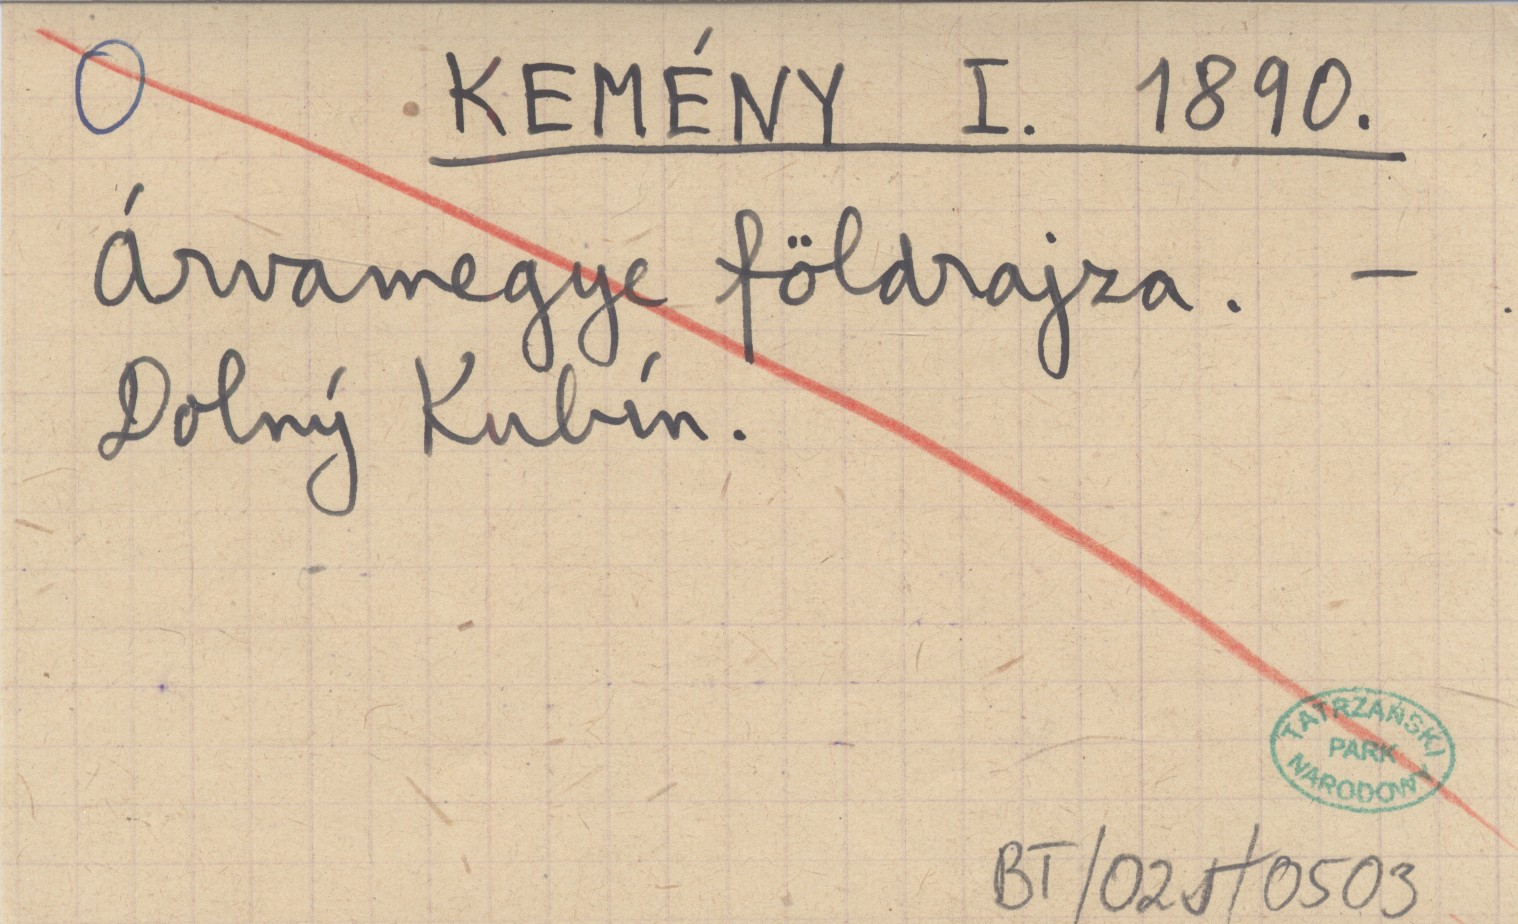 O
KEMÉNY I. 1890.
Árvamegye földrajza. —
Dolný Kubín.
TATRZAŃSKI
PARK
NARODOWY
BT/02s/0503